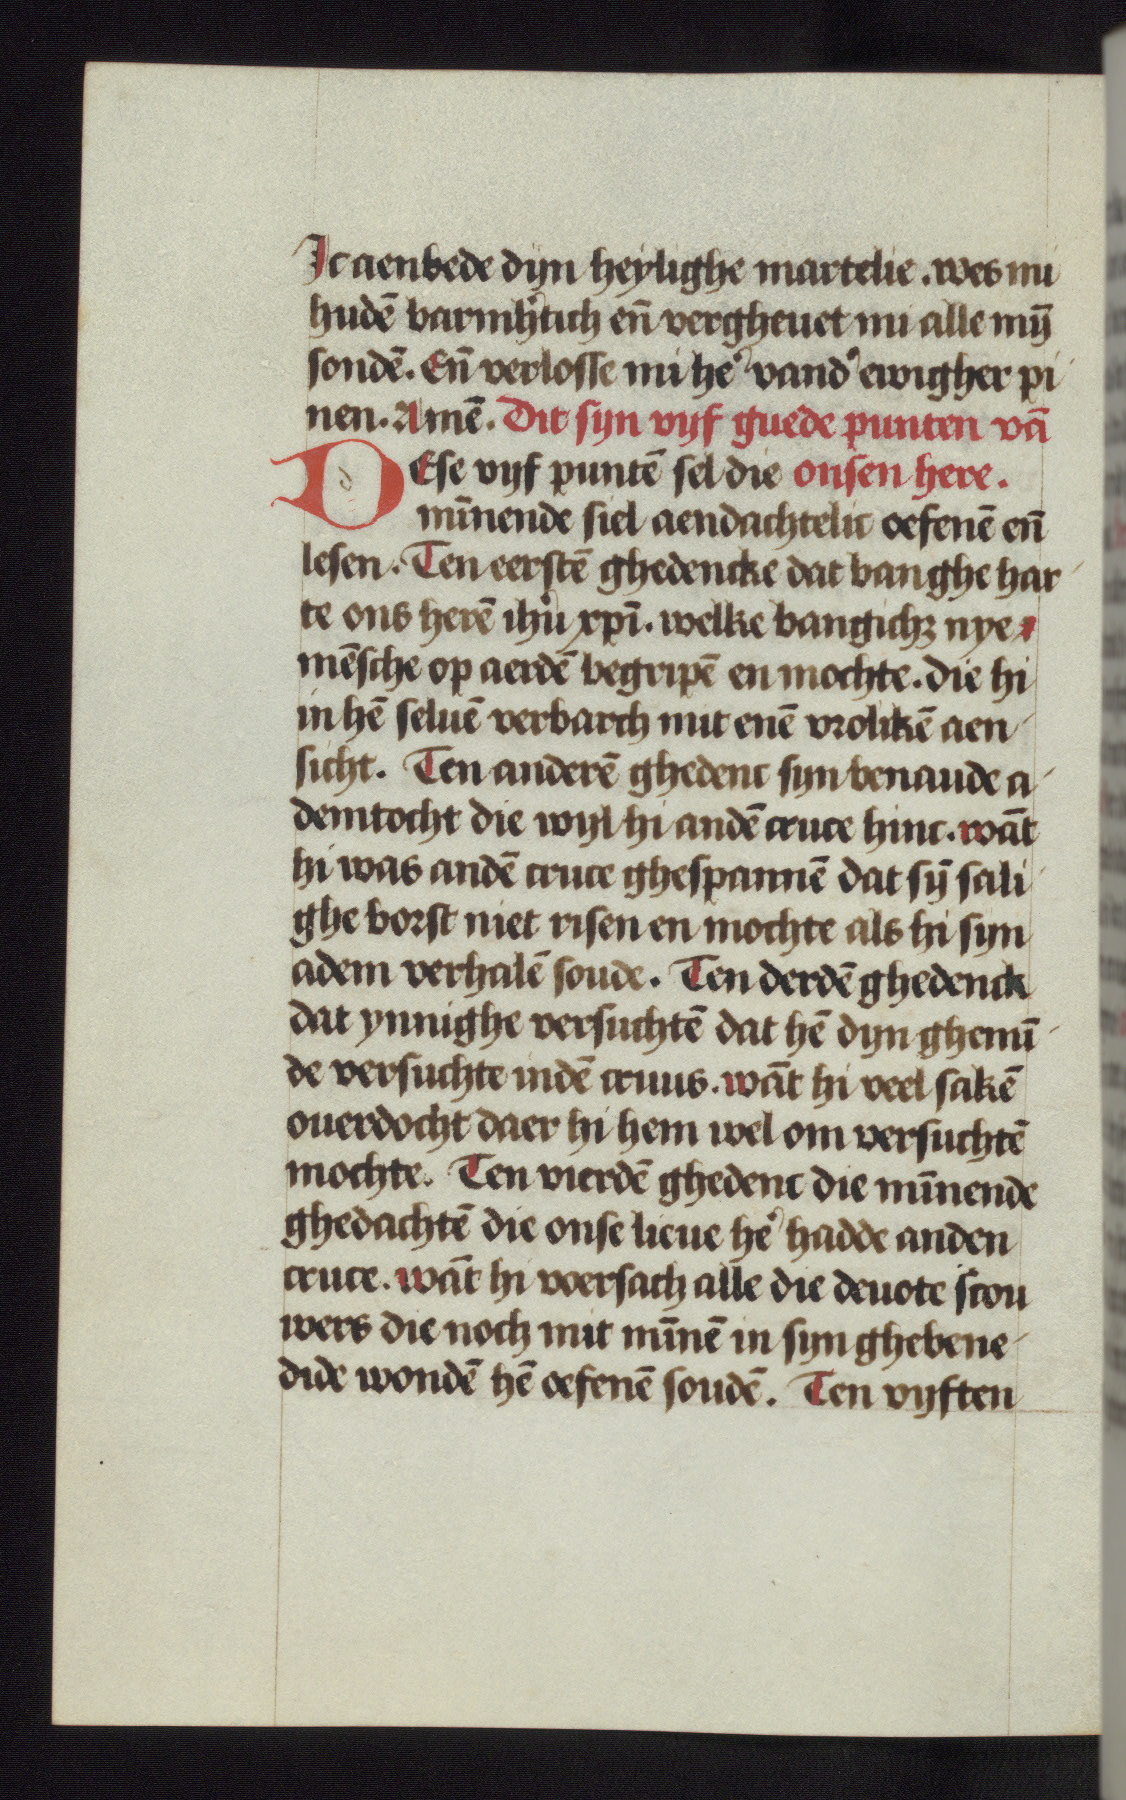 Ic aenbede dijn heylighe martelie. wes mi
hudē barmh'tich eñ vergheuet mi alle mȳ
sondē. Eñ verlosse mi he' vand' ewigher pi
nen. Amē. Dit syn vyf guede punten vā
DEse vyf puntē sel die onsen here.
mīnende siel aendachtelic oefenē eñ
lesen. Ten eerstē ghedencke dat banghe har
te ons herē ihū xpī. welke bangichʒ nye
mēsche op aerdē begripē en mochte. die hi
in hē seluē verbarch mit enē vrolikē aen
sicht. Ten anderē ghedenc syn benaude a
demtocht die wyl hi andē cruce hinc. wāt
hi was andē cruce ghespannē dat sȳ sali
ghe borst niet risen en mochte als hi syn
adem verhalē soude. Ten derdē ghedenck
dat ynnighe versuchtē dat hē dyn ghemī
de versuchte indē cruus. wāt hi veel sakē
ouerdocht daer hi hem wel om versuchtē
mochte. Ten vierdē ghedenc die mīnende
ghedachtē die onse lieue he' hadde anden
cruce. wāt hi voersach alle die deuote scou
wers die noch mit mīnē in syn ghebene
dide wondē hē oefenē soudē. Ten vyften